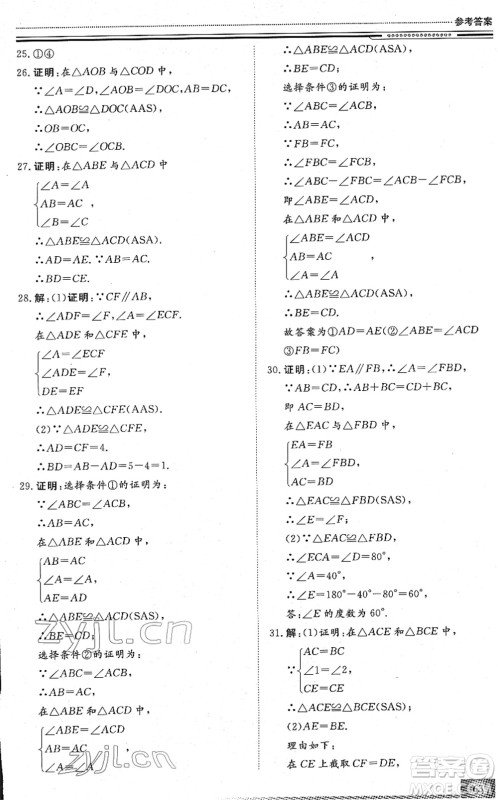 参考答案
25. ①④
26. 证明：在△AOB与△COD中，
∵∠A=∠D，∠AOB=∠DOC，AB=DC，
∴△AOB≌△DOC(AAS)，
∴OB=OC，
∴∠OBC=∠OCB.
27. 证明：在△ABE与△ACD中
∠A=∠A
AB=AC，
∠B=∠C
∴△ABE≌△ACD(ASA).
∴AD=AE. ∵AB=AC.
∴BD=CE.
28. 解：(1)证明：∵CF∥AB，
∴∠ADF=∠F，∠A=∠ECF，
在△ADE和△CFE中，
∠A=∠ECF
∠ADE=∠F，
DE=EF
∴△ADE≌△CFE(AAS).
(2)∵△ADE≌△CFE，
∴AD=CF=4.
∴BD=AB−AD=5−4=1.
29. 证明：选择条件①的证明为：
∵∠ABC=∠ACB，
∴AB=AC，
在△ABE和△ACD中，
AB=AC
∠A=∠A，
AE=AD
∴△ABE≌△ACD(SAS)，
∴BE=CD；
选择条件②的证明为：
∵∠ABC=∠ACB，
∴AB=AC，
在△ABE和△ACD中，
∠ABE=∠ACD
AB=AC，
∠A=∠A
∴△ABE≌△ACD(ASA)
∴BE=CD；
选择条件③的证明为：
∵∠ABC=∠ACB，
∴AB=AC，
∵FB=FC，
∴∠FBC=∠FCB，
∴∠ABC−∠FBC=∠ACB−∠FCB，
即∠ABE=∠ACD，
在△ABE和△ACD中，
∠ABE=∠ACD
AB=AC，
∠A=∠A
∴△ABE≌△ACD(ASA)，
∴BE=CD.
故答案为①AD=AE(②∠ABE=∠ACD
③FB=FC)
30. 证明：(1)∵EA∥FB，∴∠A=∠FBD，
∵AB=CD，∴AB+BC=CD+BC，
即AC=BD，
在△EAC与△FBD中，
EA=FB
∠A=∠FBD，
AC=BD
∴△EAC≌△FBD(SAS)，
∴∠E=∠F；
(2)∵△EAC≌△FBD，
∴∠ECA=∠D=80°，
∵∠A=40°，
∴∠E=180°−40°−80°=60°，
答：∠E的度数为60°.
31. 解：(1)证明：在△ACE和△BCE中，
AC=BC
∵∠1=∠2，
CE=CE
∴△ACE≌△BCE(SAS)；
(2)AE=BE.
理由如下：
在CE上截取CF=DE，
zyjl.cn
zyjl.cn
答案圈
MXQE.COM